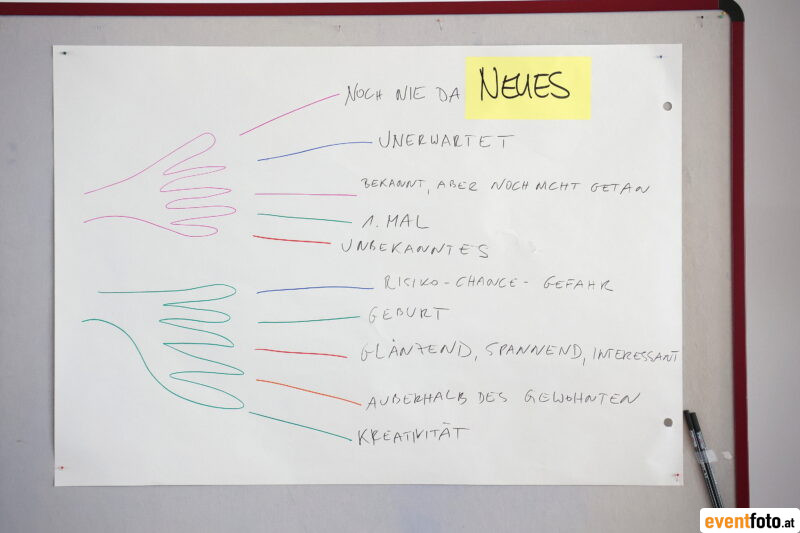 NOCH NIE DA NEUES
UNERWARTET
BEKANNT, ABER NOCH NICHT GETAN
1. MAL
UNBEKANNTES
RISIKO - CHANCE - GEFAHR
GEBURT
GLÄNZEND, SPANNEND, INTERESSANT
AUßERHALB DES GEWOHNTEN
KREATIVITÄT
eventfoto.at